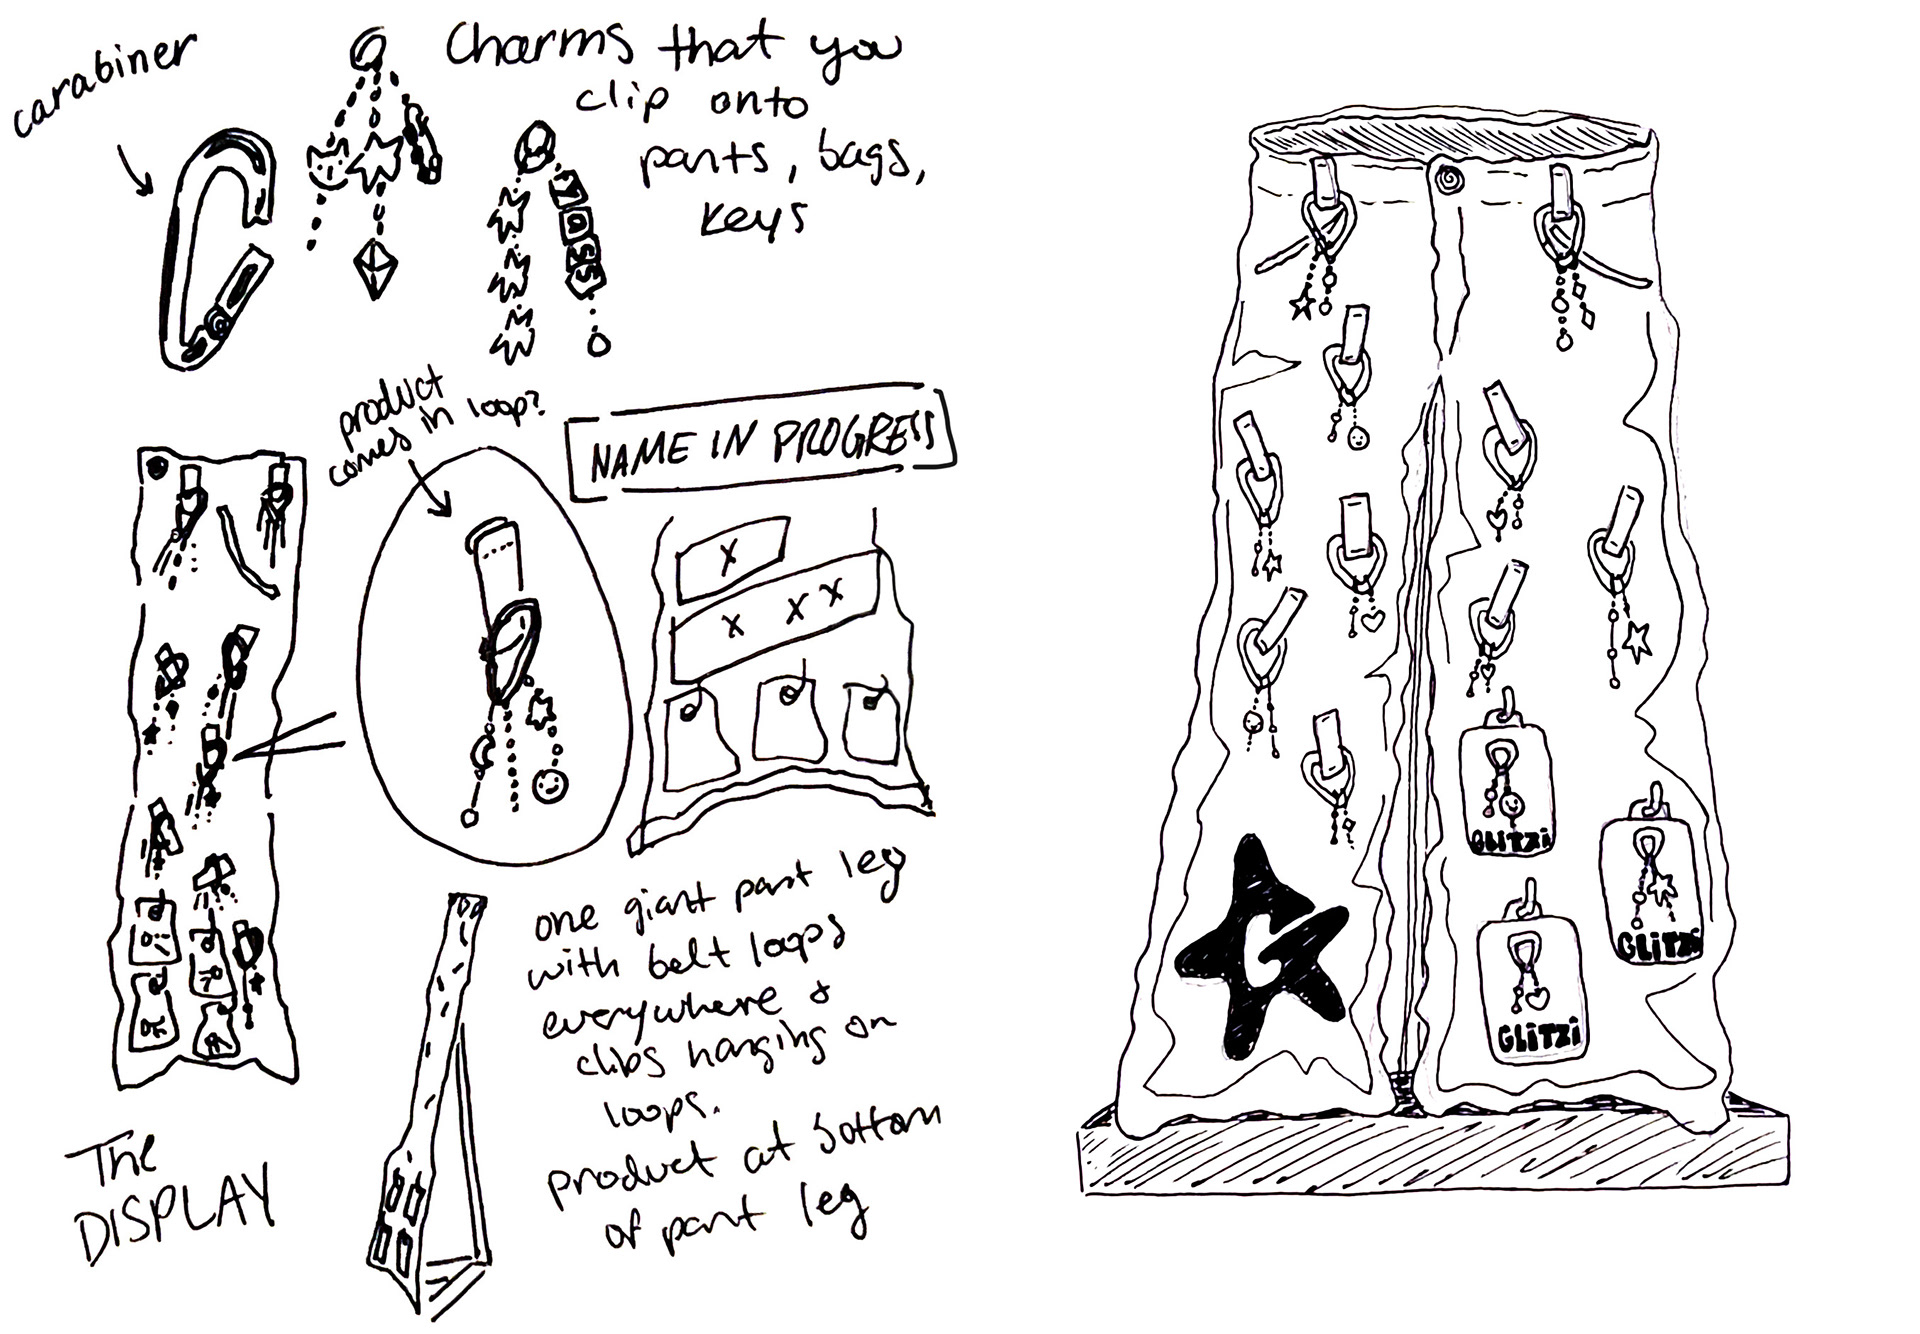 carabiner
Charms that you
clip onto
pants, bags,
keys
YASS
product
comes in loop?
NAME IN PROGRESS
X
X X X
one giant pant leg
with belt loops
everywhere &
clibs hanging on
loops.
product at bottom
of pant leg
The
DISPLAY
GLITZi
GLITZi
GLITZi
G